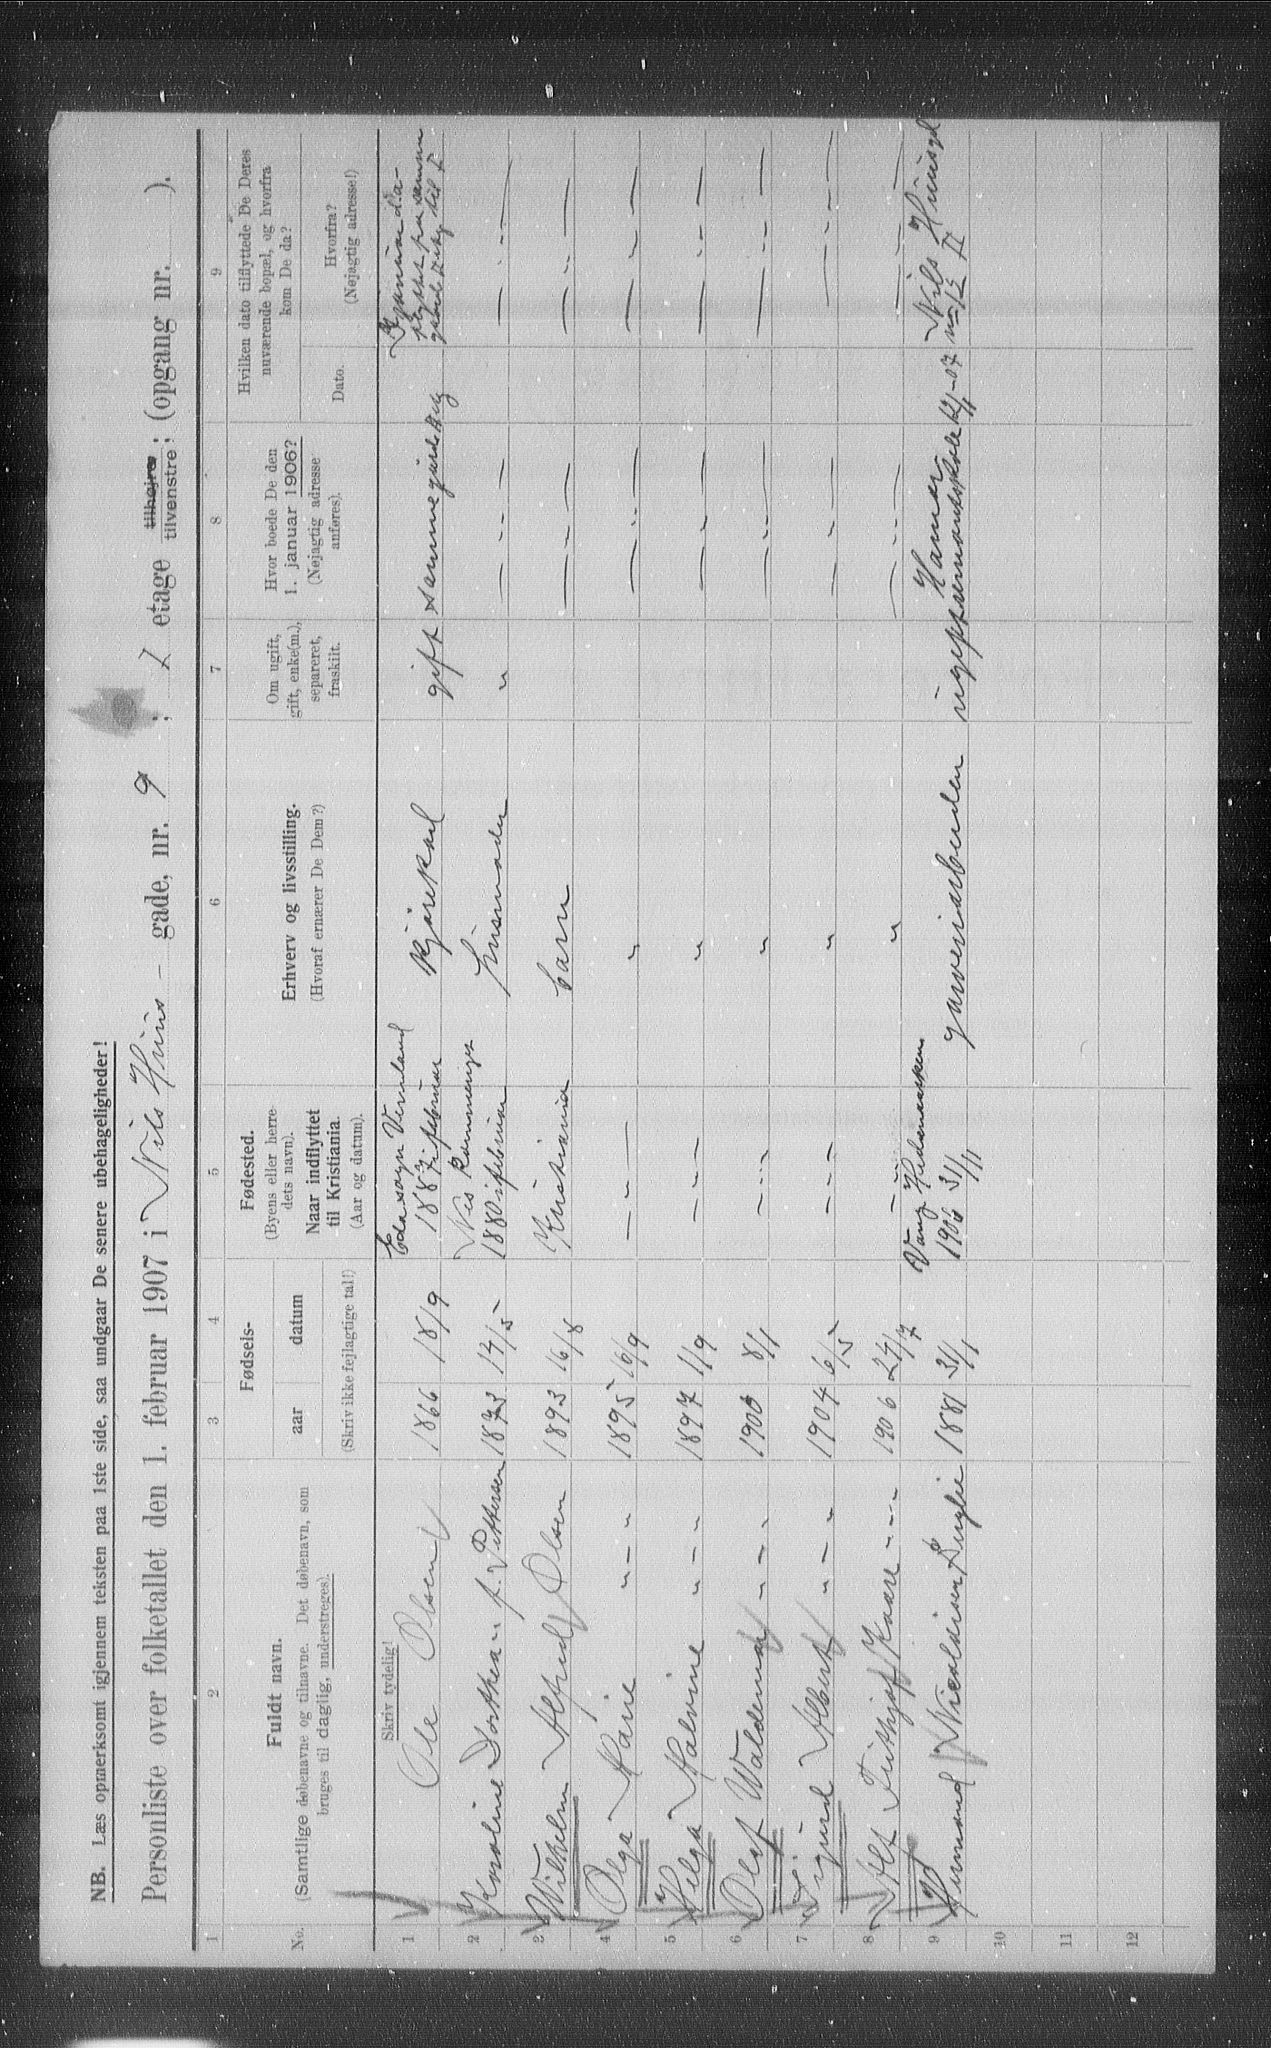 NB. Læs opmerksomt igjennem teksten paa 1ste side, saa undgaar De senere ubehageligheder!
Personliste over folketallet den 1. februar 1907 i Nils Huus - gade, nr. 9 ; I etage tilhøjre tilvenstre; (opgang nr. ).
1 2 3 4 5 6 7 8 9
No.
Fuldt navn.
(Samtlige døbenavne og tilnavne. Det døbenavn, som
bruges til daglig, understreges).
Fødsels-
aar datum
(Skriv ikke fejlagtige tal!)
Fødested.
(Byens eller herre-
dets navn).
Naar indflyttet
til Kristiania.
(Aar og datum).
Erhverv og livsstilling.
(Hvoraf ernærer De Dem?)
Om ugift,
gift, enke(m.),
separeret,
fraskilt.
Hvor boede De den
1. januar 1906?
(Nøjagtig adresse
anføres).
Hvilken dato tilflyttede De Deres
nuværende bopæl, og hvorfra
kom De da?
Dato.
Hvorfra?
(Nøjagtig adresse!)
Skriv tydelig!
1 Ole Olsen 1866 18/9 Eda sogn Vermland 1887 februar kjørekarl gift samme gaard
2 Karoline Dorthea " f. Pettersen 1873 14/5 Nes 1880 februar husmoder " — " —
3 Wilhelm Alfred Olsen 1893 16/8 Kristiania barn — " —
4 Olga Marie " - " 1895 16/9 — " — " — " —
5 Helga Malvine " - " 1897 1/9 — " — " — " —
6 Olaf Waldemar " - " 1900 8/1 — " — " — " —
7 Sigurd Albert " - " 1904 6/5 — " — " — " —
8 Alf Frithjof Kaare " - " 1906 24/7 — " — " — " —
9 Nicolaisen 1881 3/1 Vang Hedemarken 1906 garveriarbeider ugift Hamar Nils Huusgd
10
11
12